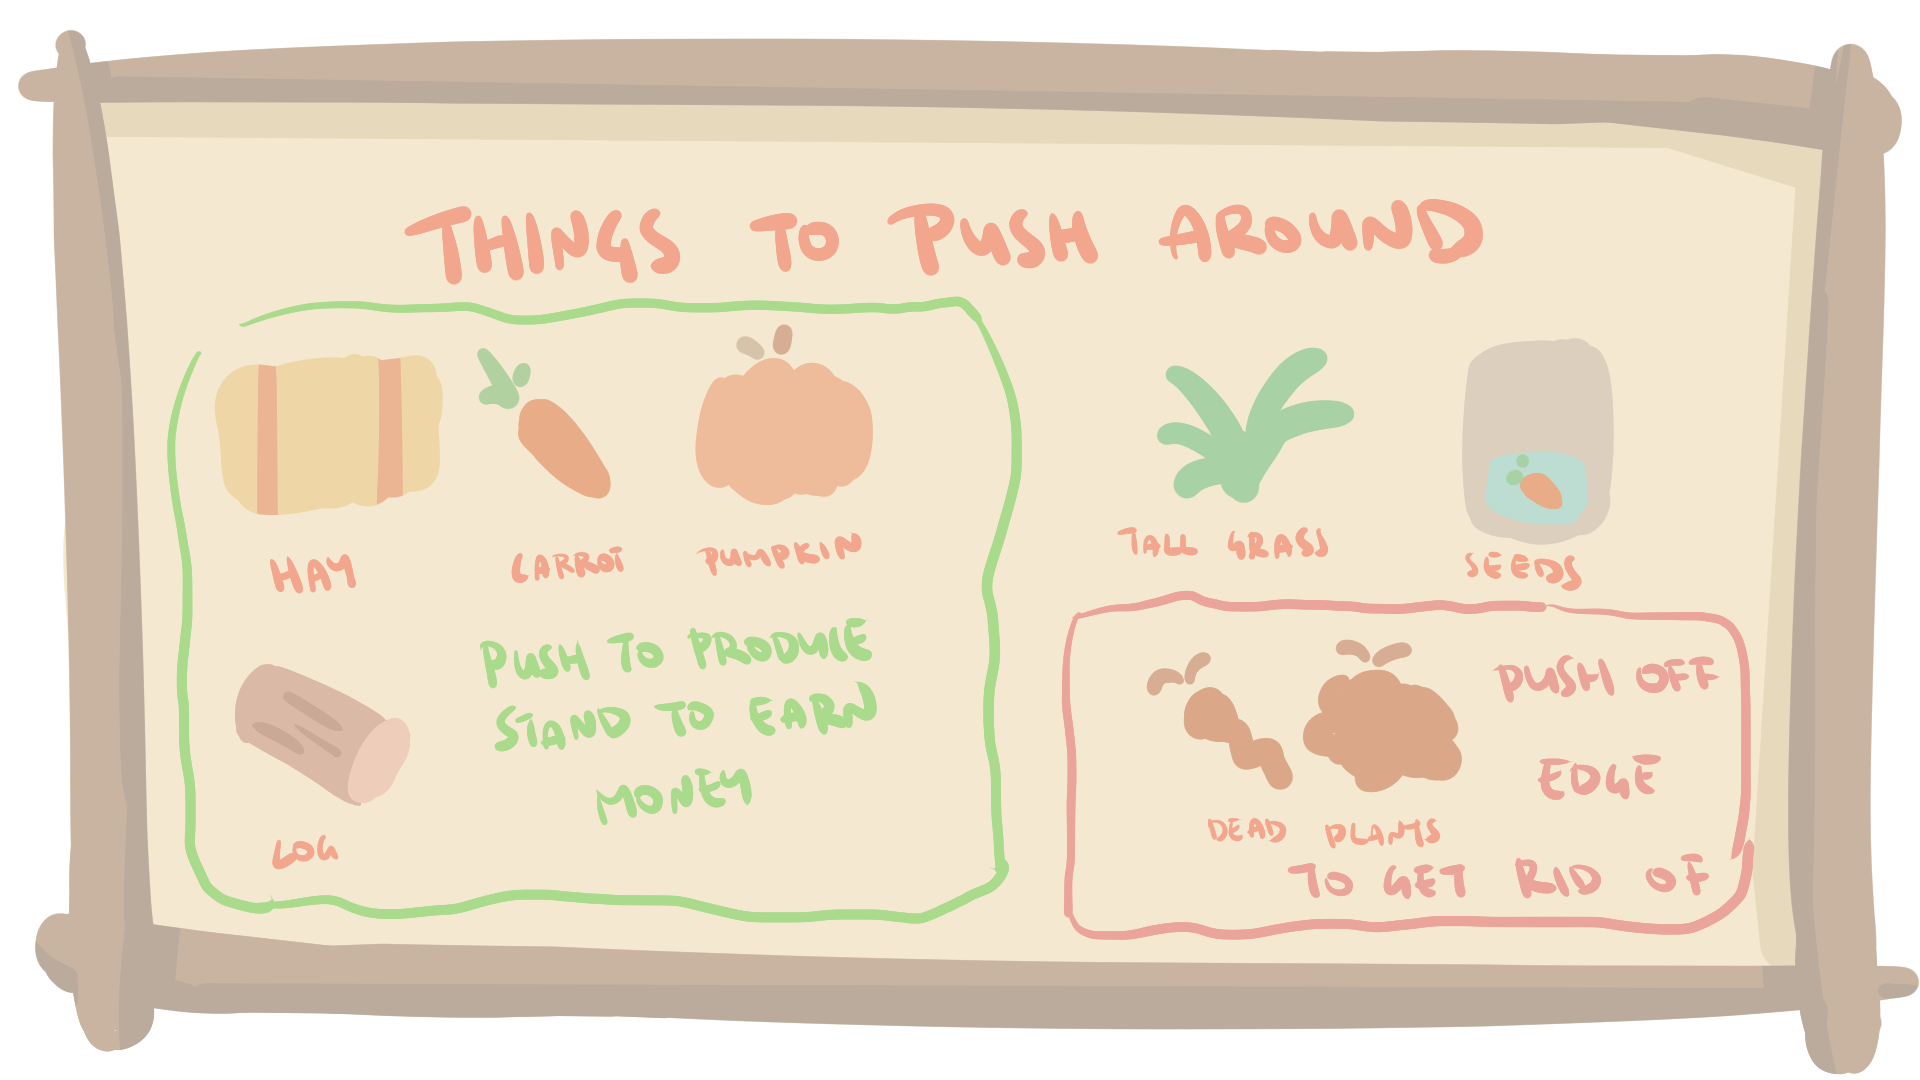 THINGS TO PUSH AROUND
HAY
CARROT
PUMPKIN
LOG
PUSH TO PRODUCE
STAND TO EARN
MONEY
TALL GRASS
SEEDS
DEAD PLANTS
PUSH OFF
EDGE
TO GET RID OF